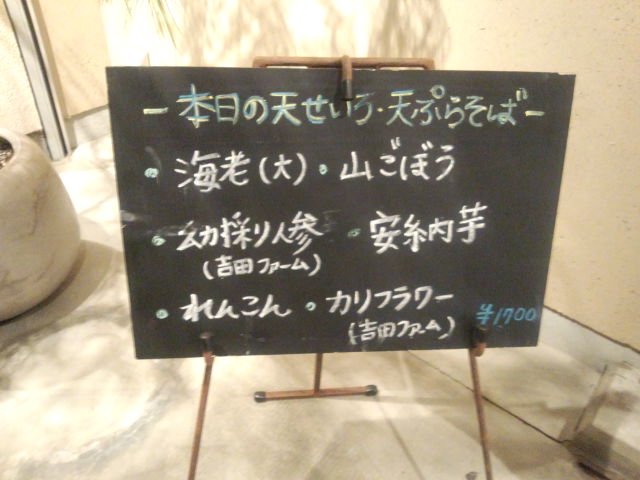 ー本日の天せいろ・天ぷらそばー
・海老(大)・山ごぼう
・幼採り人参 ・安納芋
(吉田ファーム)
・れんこん ・カリフラワー
(吉田ファーム) ¥1700